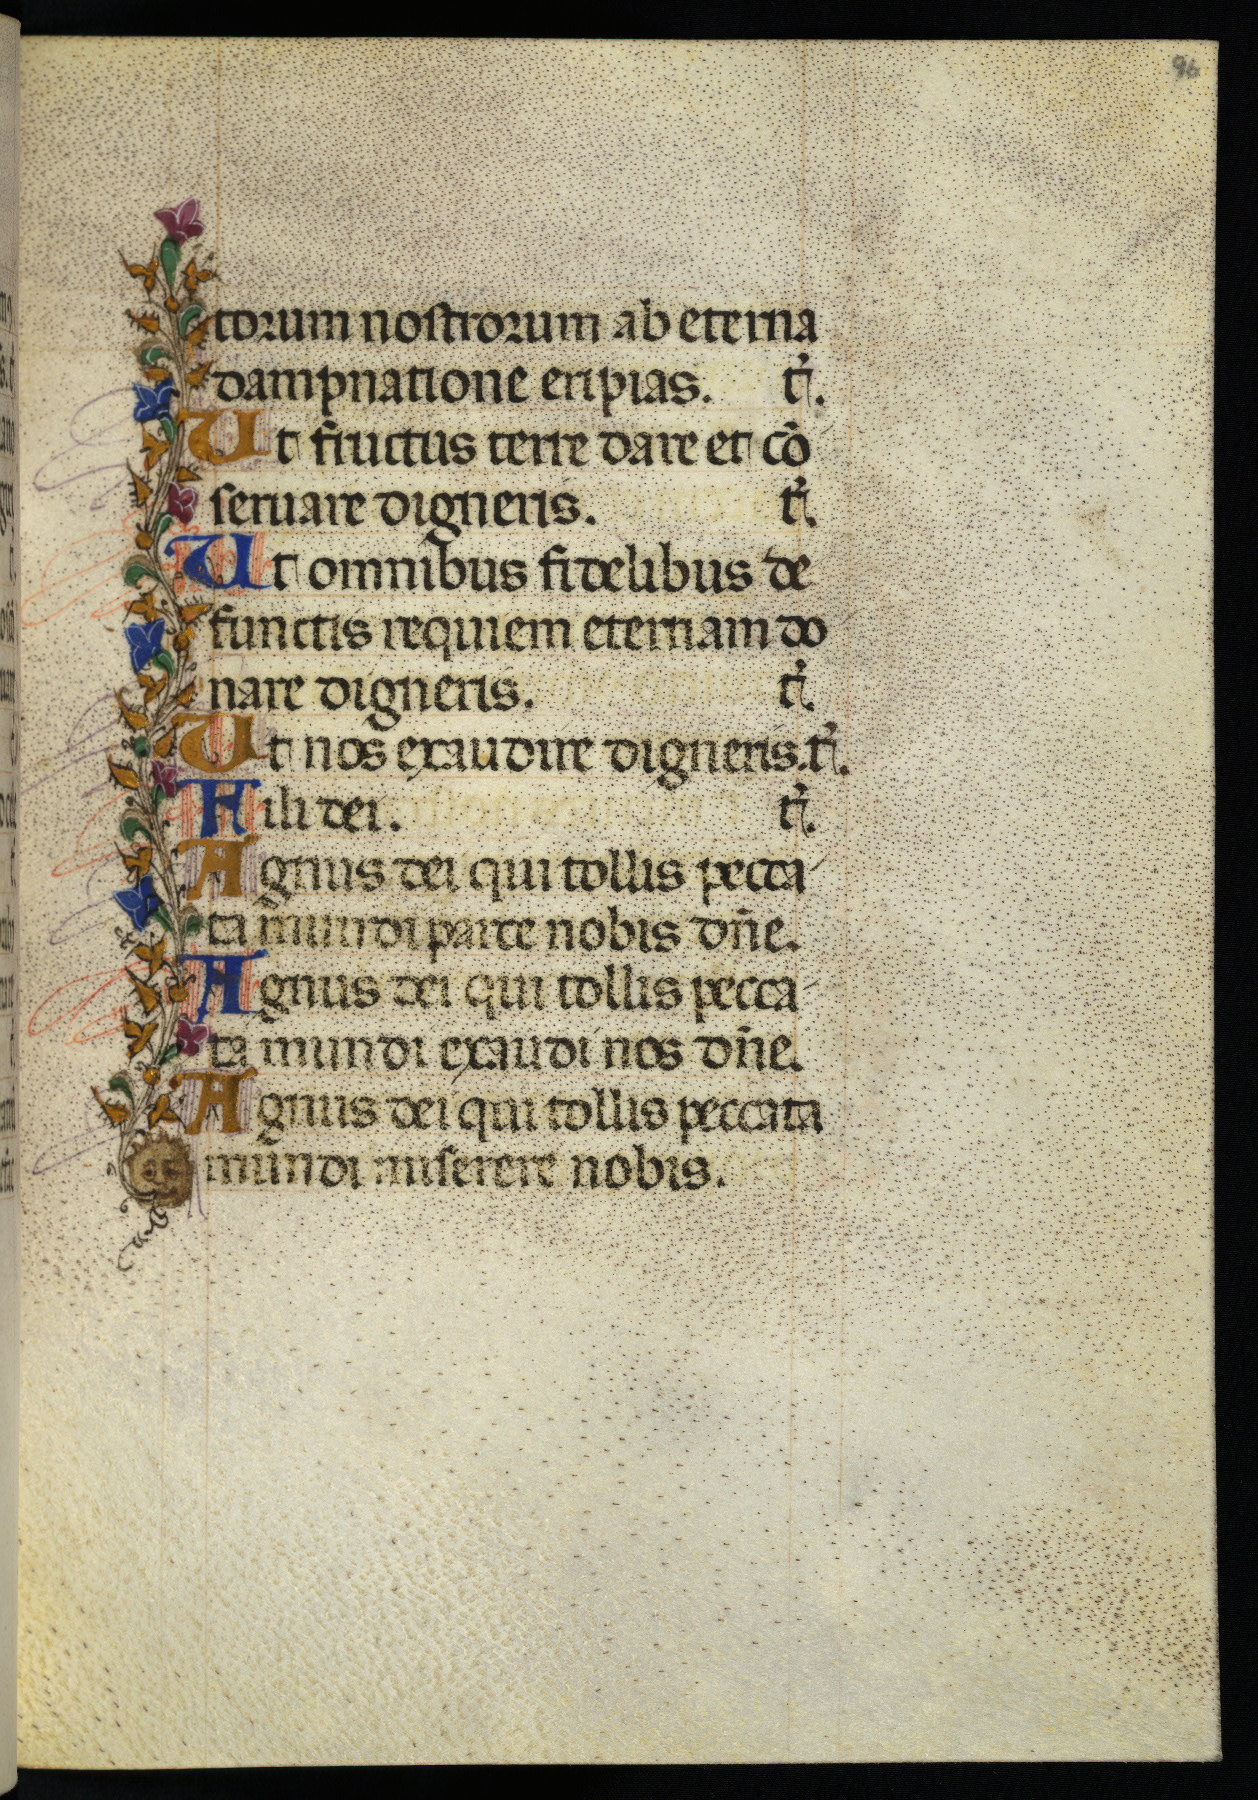 96
torum nostrorum ab eterna
dampnatione eripias. t̃.
Ut fructus terre dare et cõ
seruare digneris. t̃.
Ut omnibus fidelibus de
functis requiem eternam do
nare digneris. t̃.
Ut nos exaudire digneris. t̃.
Fili dei. t̃.
Agnus dei qui tollis pecca
ta mundi parce nobis dñe.
Agnus dei qui tollis pecca
ta mundi exaudi nos dñe.
Agnus dei qui tollis peccata
mundi miserere nobis.